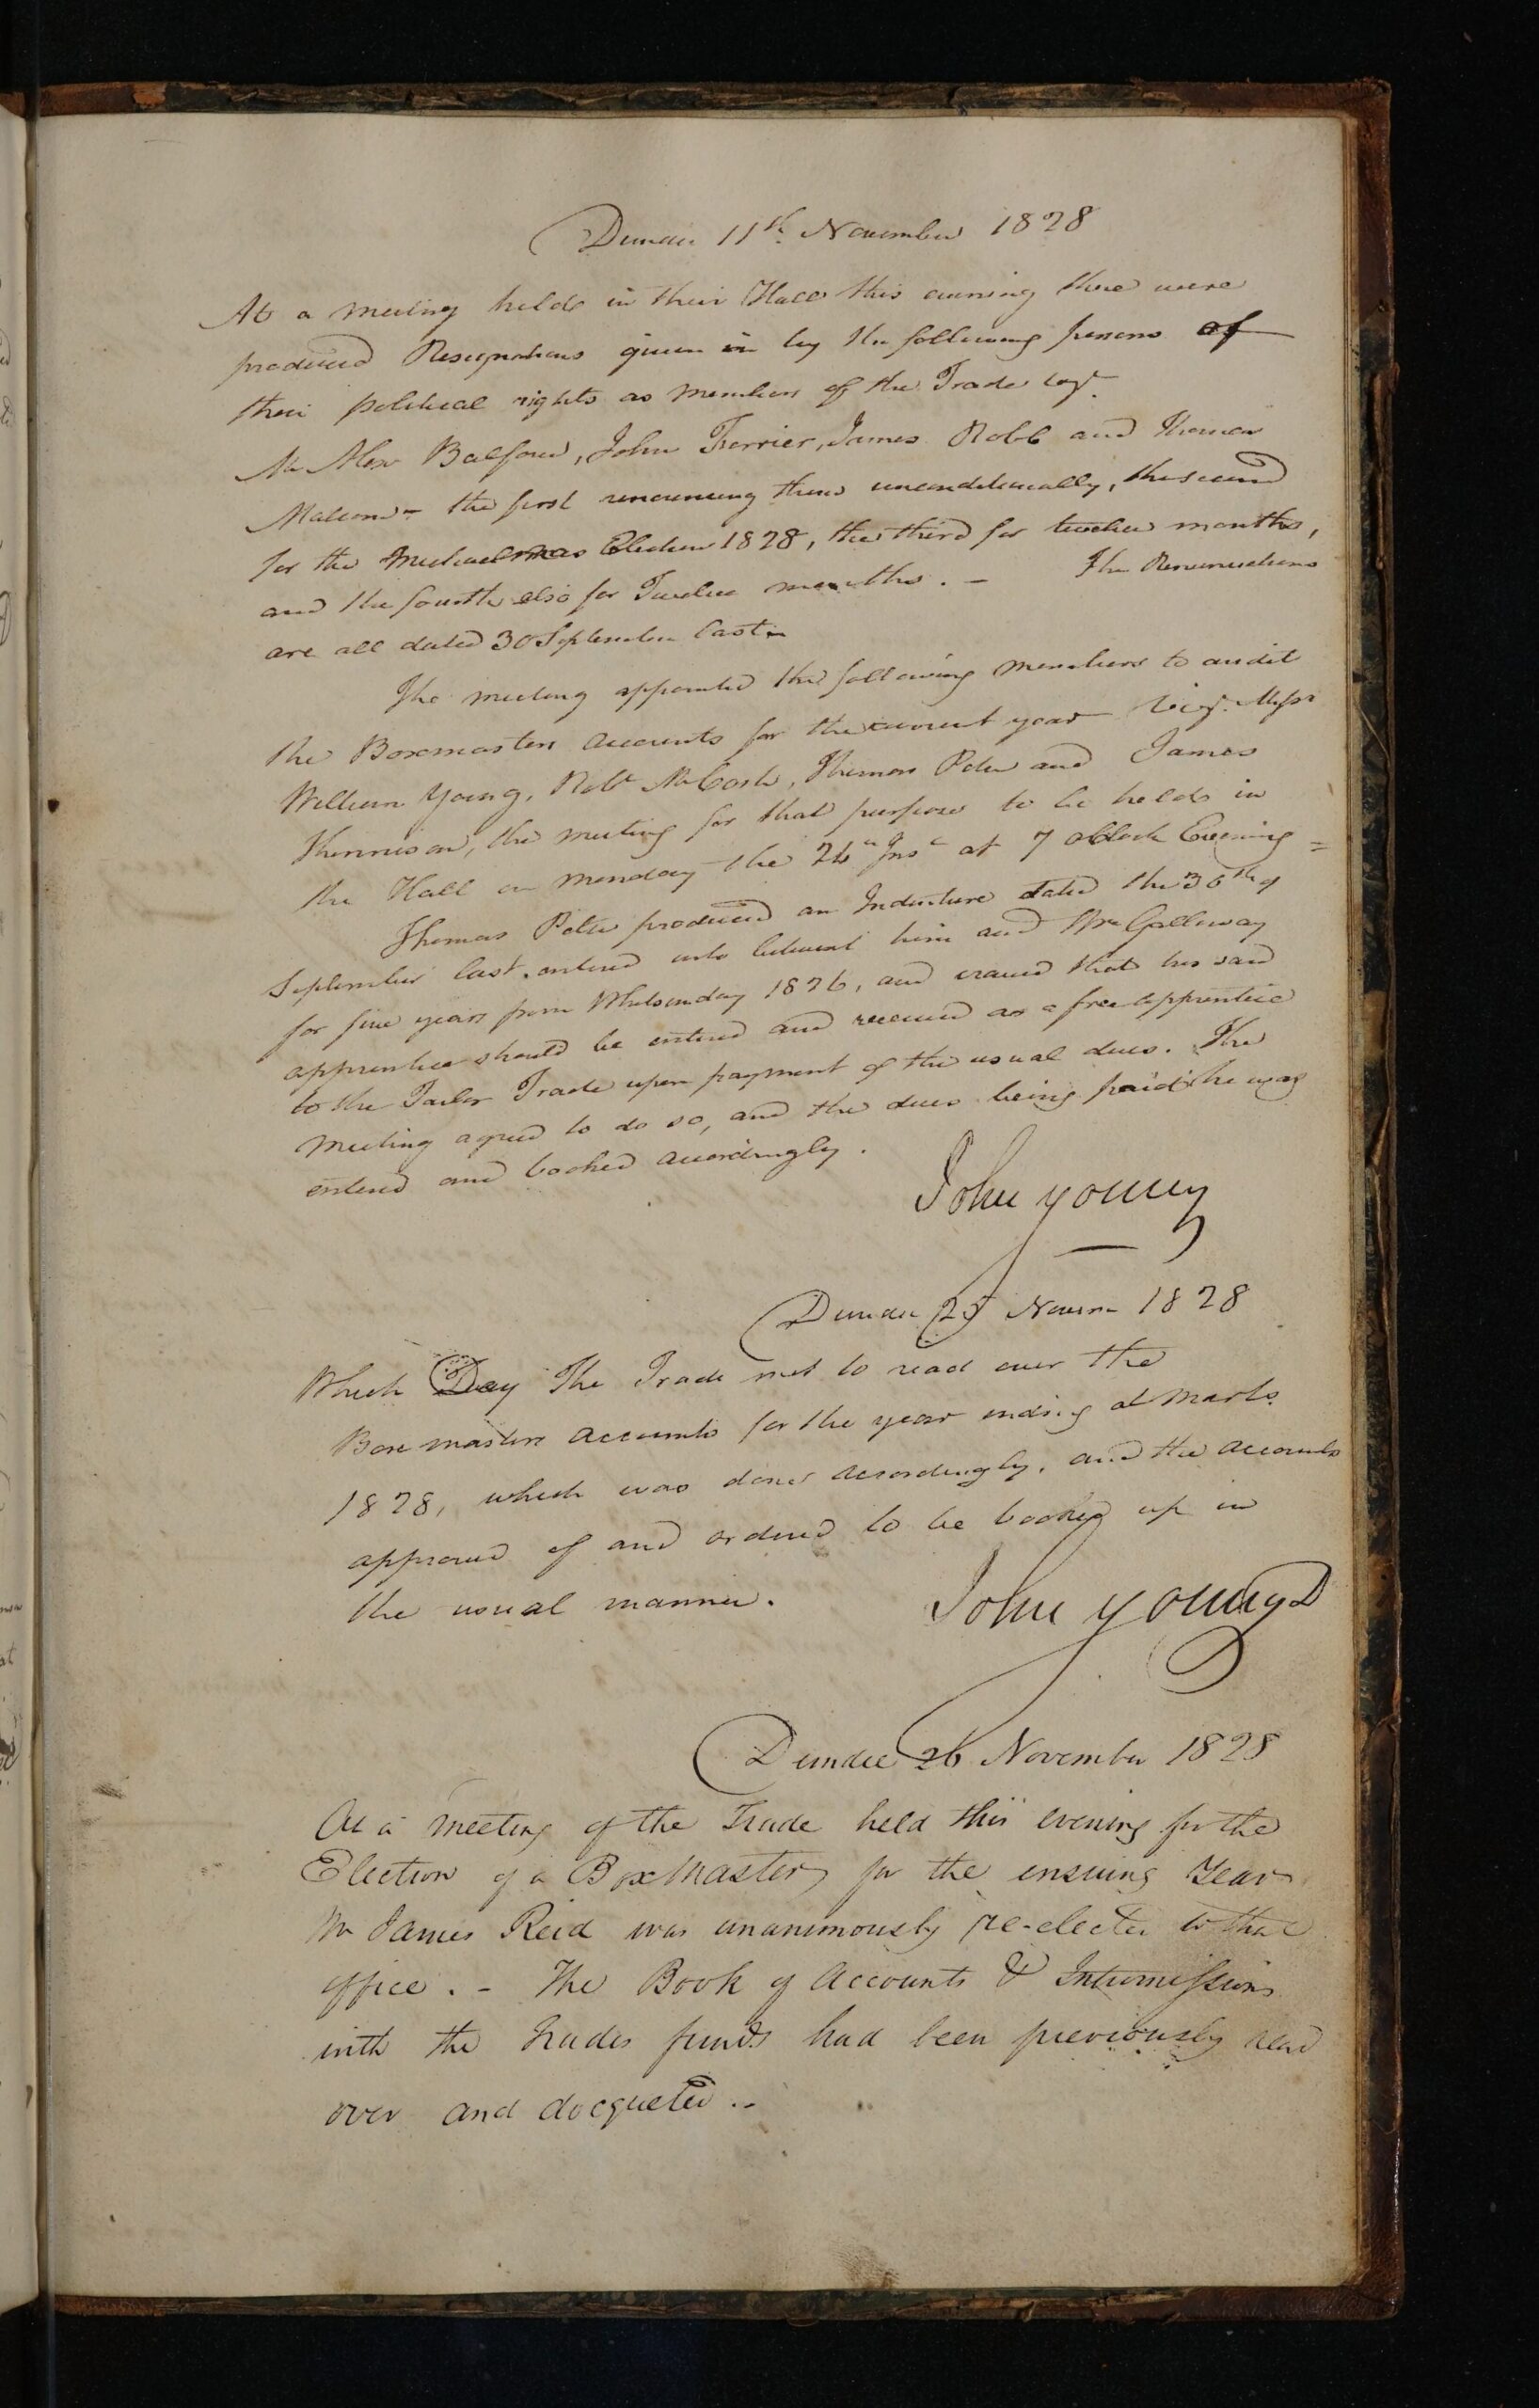 Dundee 11th. November 1828
At a meeting held in their Hall this evening there were
produced Resignations given in by the following persons of
their political rights as members of the Trade vizt.
Mr Alexr Balfour, John Ferrier, James Robb and Thomas
Malcom - the first renouncing theirs unconditionally, the second
for the Michaelmas Election 1828, the third for twelve months,
and the fourth also for Twelve months. - The Renunciations
are all dated 30 September last -
The meeting appointed the following members to audit
the Boxmasters accounts for the current year vizt. Messrs
William Young, Robt McCosh, Thomas Peter and James
Thomson, the meeting for that purpose to be held in
the Hall on Monday the 24th Inst at 7 oClock Evening =
Thomas Peter produced an Indenture dated the 30th of
September last, entered into between him and Wm Galloway
for five years from Whitsunday 1826, and craved that his said
apprentice should be entered and received as a free apprentice
to the Tailor Trade upon payment of the usual dues. The
meeting agreed to do so, and the dues being paid he was
entered and booked accordingly.
John young
Dundee 25 Novem 1828
Which Day The Trade met to read over the
Boxmasters accounts for the year ending at Marts.
1828, which was done accordingly, and the accounts
approved of and ordered to be booked up in
the usual manner.
John young D
Dundee 26 November 1828
At a meeting of the Trade held this evening for the
Election of a Boxmaster for the ensuing Year
Mr James Reid was unanimously re-elected to that
office. - The Book of Accounts & Intromissions
with the Trades funds had been previously read
over and docqueted. -